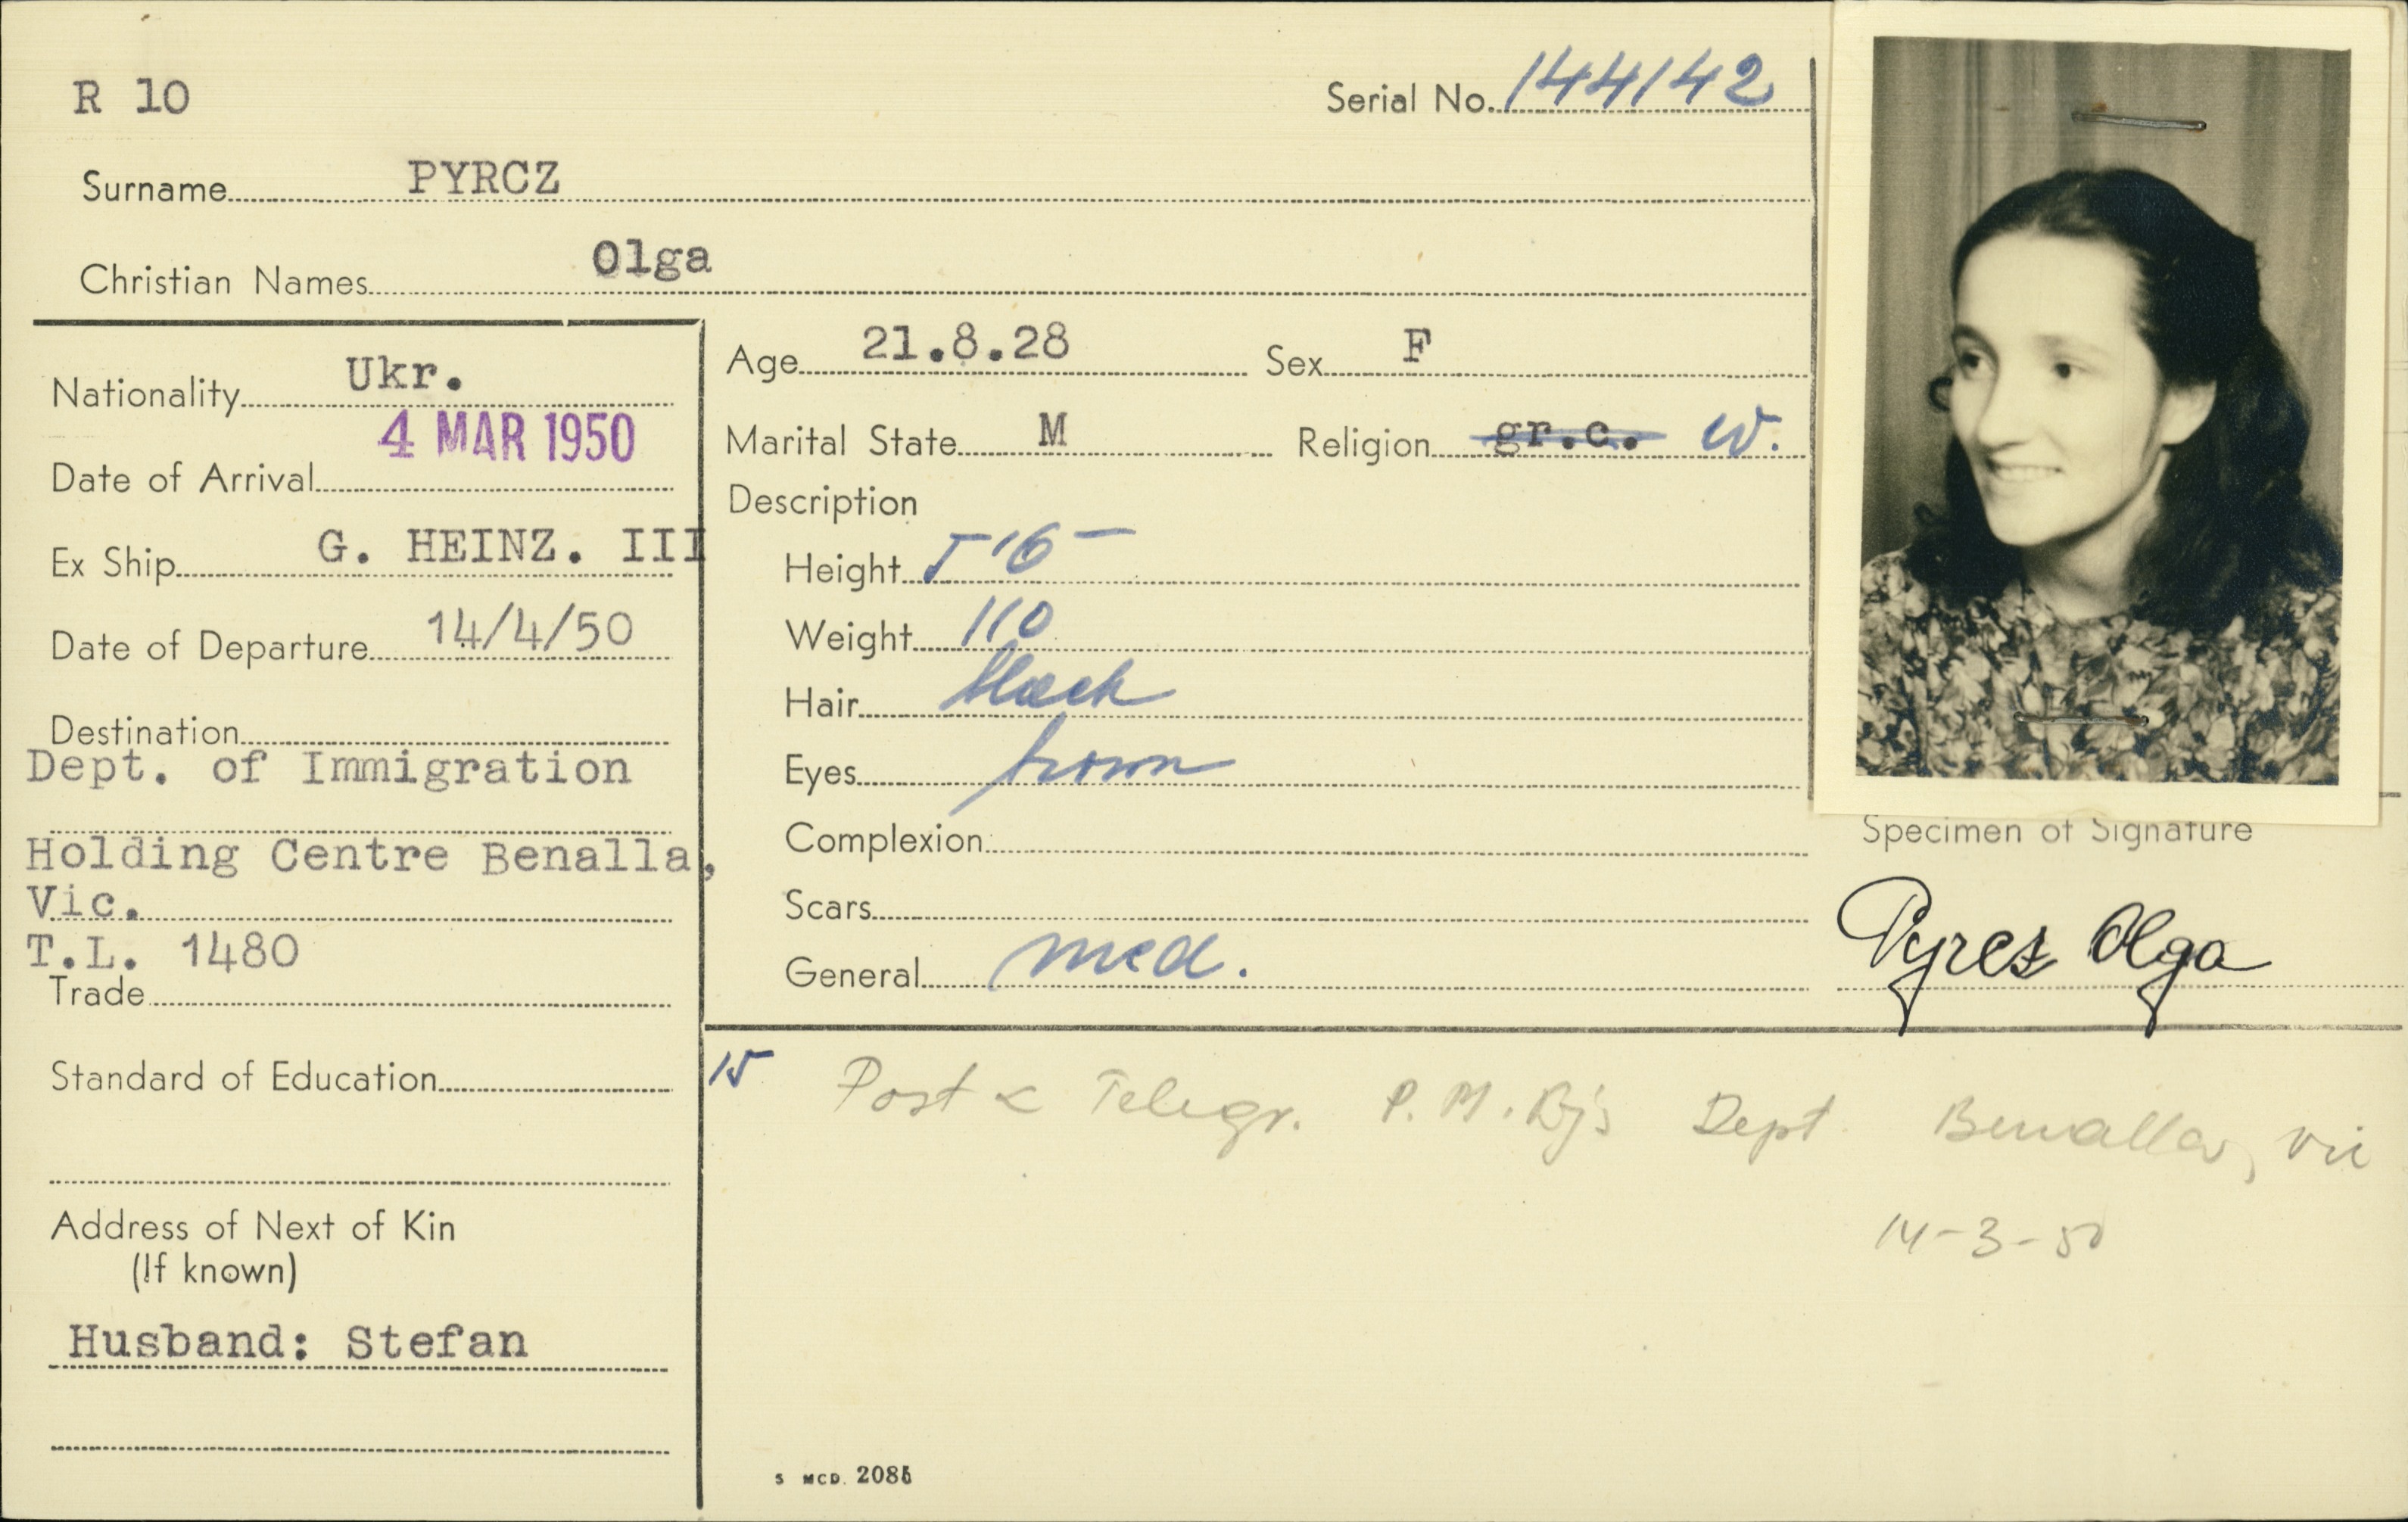 R 10
Serial No. 144142
Surname PYRCZ
Christian Names Olga
Nationality Ukr.
Date of Arrival 4 MAR 1950
Ex Ship G. HEINZ. III
Date of Departure 14/4/50
Destination
Dept. of Immigration
Holding Centre Benalla,
Vic.
T.L. 1480
Trade
Standard of Education
Address of Next of Kin
(If known)
Husband: Stefan
Age 21.8.28 Sex F
Marital State M Religion gr.c. W.
Description
Height 5'6
Weight 110
Hair black
Eyes brown
Complexion
Scars
General med.
Specimen of Signature
Pyrcz Olga
15 Post & Telegr. P.M. Dept Benalla, Vic
14-3-50
S MCD. 2085